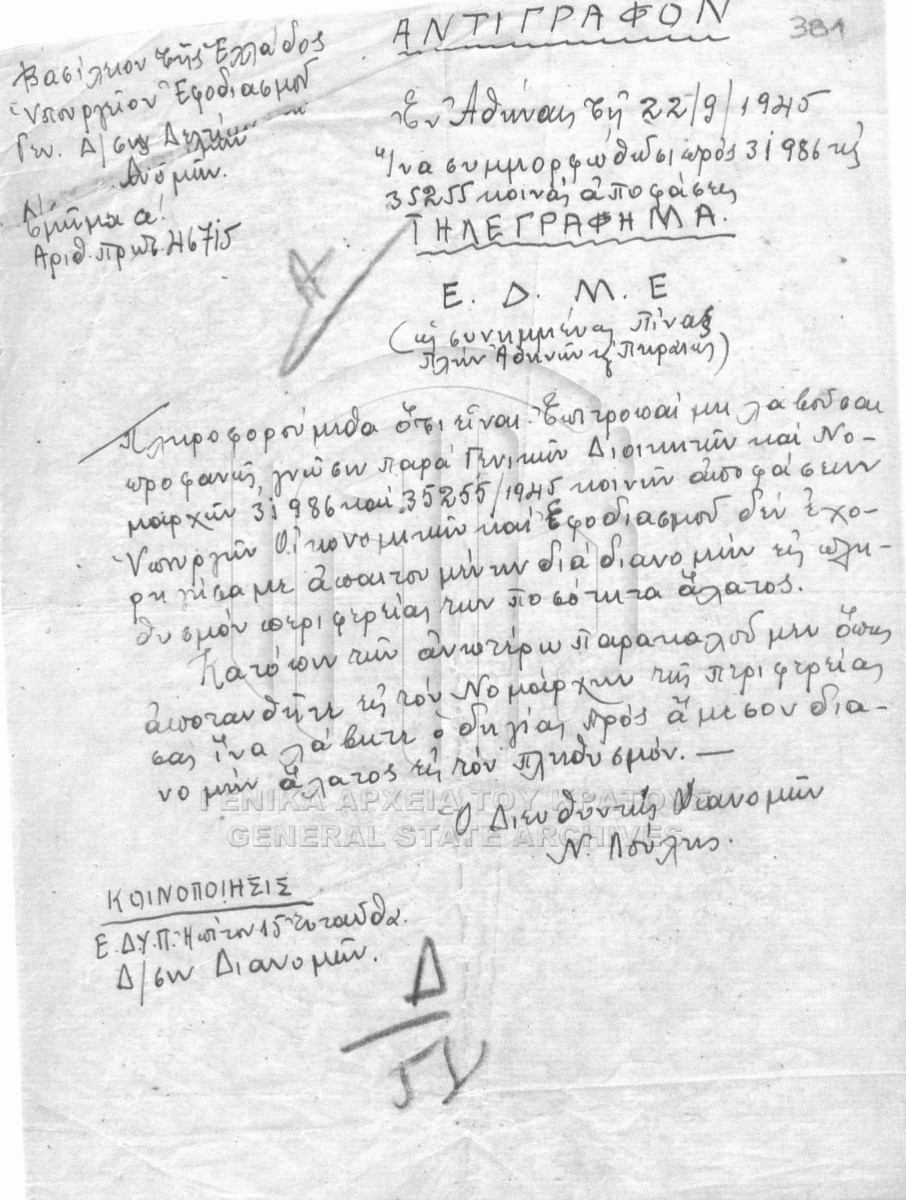 ΑΝΤΙΓΡΑΦΟΝ
381
Βασίλειον τῆς Ἑλλάδος
Ὑπουργεῖον Ἐφοδιασμοῦ
Γεν. Δ/σις
Τμῆμα α!
Ἀριθ. πρωτ. 46715
Ἐν Ἀθήναις τῇ 22/9/1945
Ἵνα συμμορφωθῶσι πρός 31986 κς
35255 κοινάς ἀποφάσεις
ΤΗΛΕΓΡΑΦΗΜΑ.
Ε. Δ. Μ. Ε
(ὡς συνημμένως Πίναξ
πλήν Ἀθηνῶν κς Πειραιῶς)
Πληροφορούμεθα ὅτι εἶναι Ἐπιτροπαί μή λαβοῦσαι
προφανῶς γνῶσιν παρά Γενικῶν Διοικητῶν καί Νο-
μαρχῶν 31986 καί 35255/1945 κοινῶν ἀποφάσεων
Ὑπουργῶν Οἰκονομικῶν καί Ἐφοδιασμοῦ δέν ἐχο-
ρήγησαμε ἀπαιτουμένην διά διανομήν εἰς πλη-
θυσμόν περιφερείας των ποσότητα ἅλατος.
Κατόπιν τῶν ἀνωτέρω παρακαλοῦμεν ὅπως
ἀποτανθῆτε εἰς τόν Νομάρχην τῆς περιφερείας
σας ἵνα λάβητε ὁδηγίας πρός ἄμεσον δια-
νομήν ἅλατος εἰς τόν πληθυσμόν. —
Ὁ Διευθυντής Διανομῶν
Ν.
ΚΟΙΝΟΠΟΙΗΣΙΣ
Ε.Δ.Υ.Π. 15 Ἐνταῦθα.
Δ/σιν Διανομῶν.
Δ
ΓΕΝΙΚΑ ΑΡΧΕΙΑ ΤΟΥ ΚΡΑΤΟΥΣ
GENERAL STATE ARCHIVES